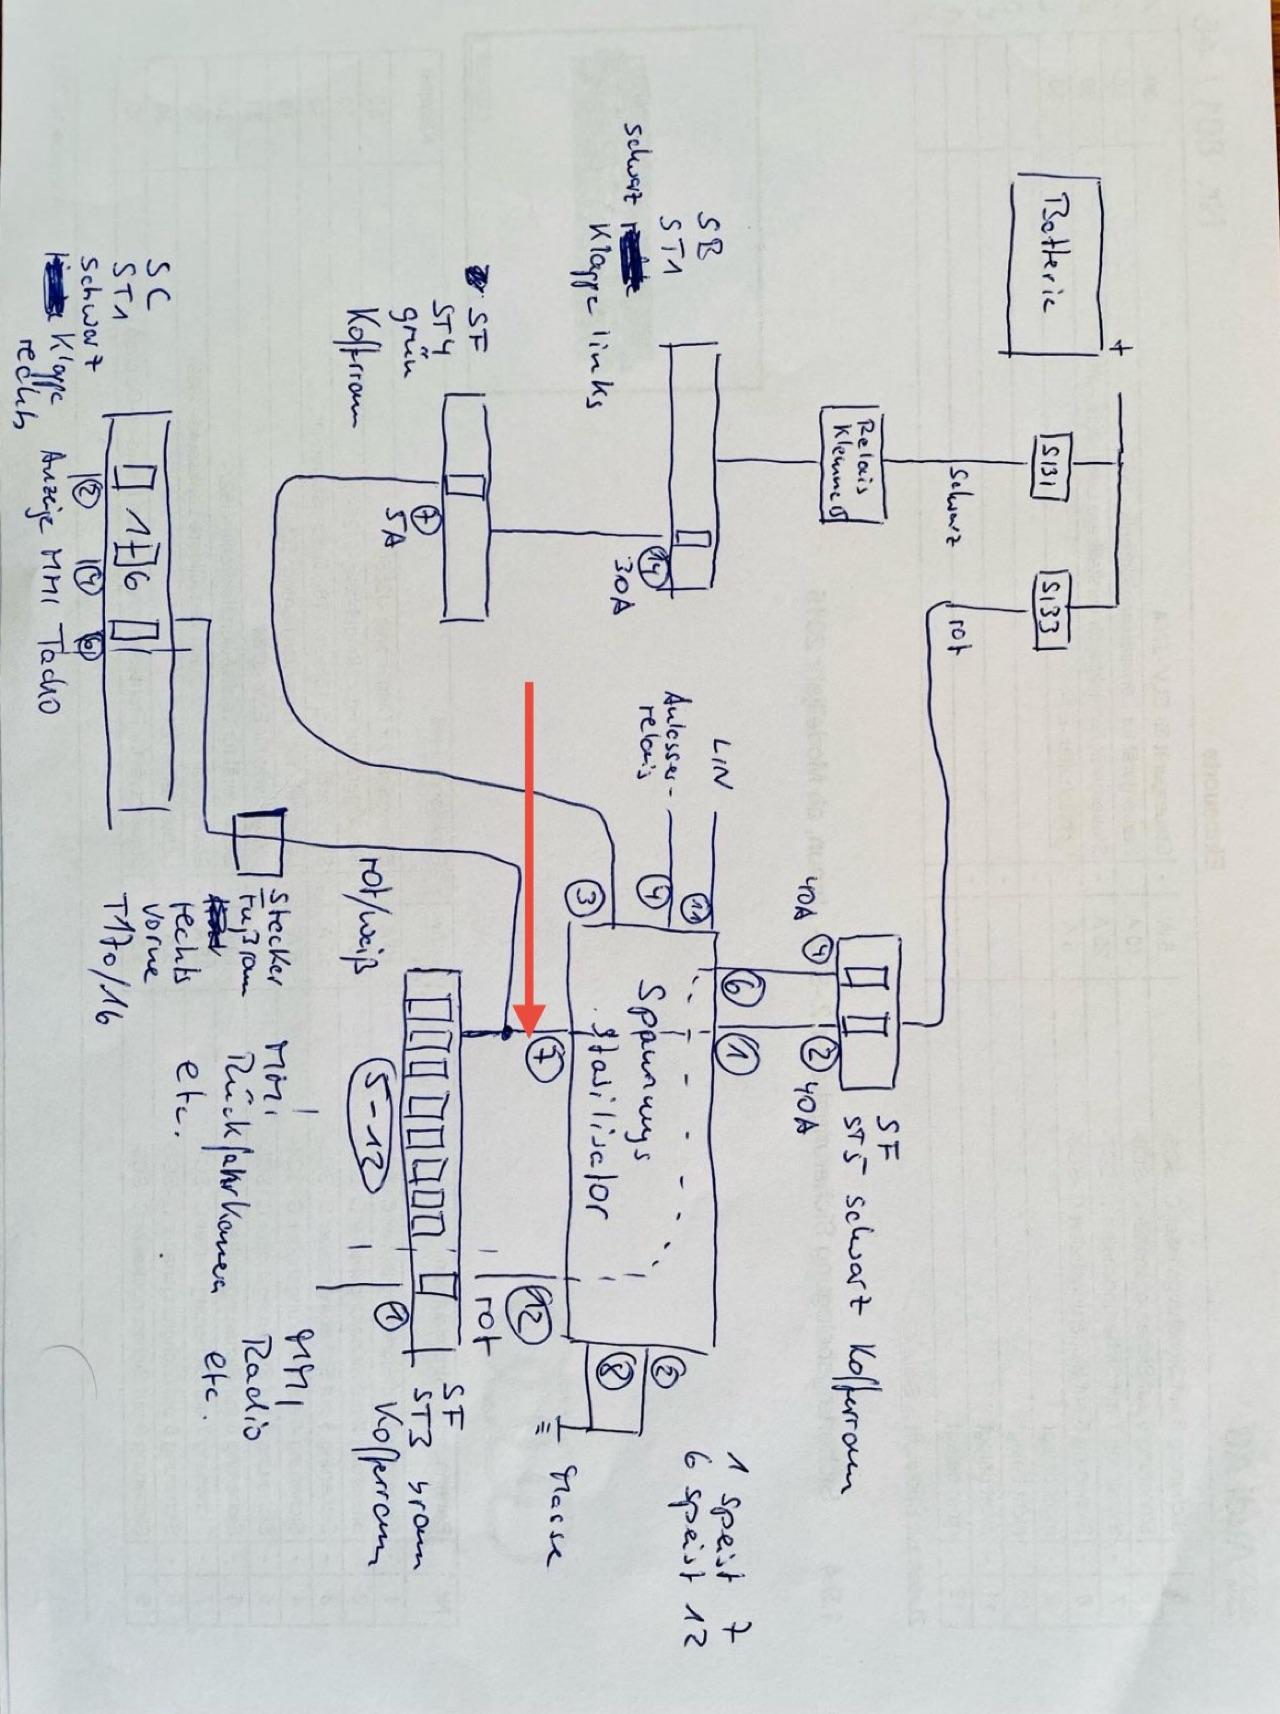 Batterie
+
S131
S133
schwarz
rot
Relais
Klemme
SB
ST1
schwarz
Klappe links
14
30A
SF
ST4
grün
Kofferraum
7
5A
SC
ST1
schwarz
Klappe
rechts
2
4
6
176
Anzeige MMI Tacho
LIN
Anlasser-
relais
11
9
3
4
40A
2
40A
SF
ST5 schwarz Kofferraum
6
1
7
12
8
2
Spannungs
Stabilisator
rot/weiß
Stecker
Fußraum
rechts
vorne
T17o/16
5-12
1
rot
MMI
Rückfahrkamera
etc.
MMI
Radio
etc.
SF
ST3 braun
Kofferraum
Masse
1 speist 7
6 speist 12